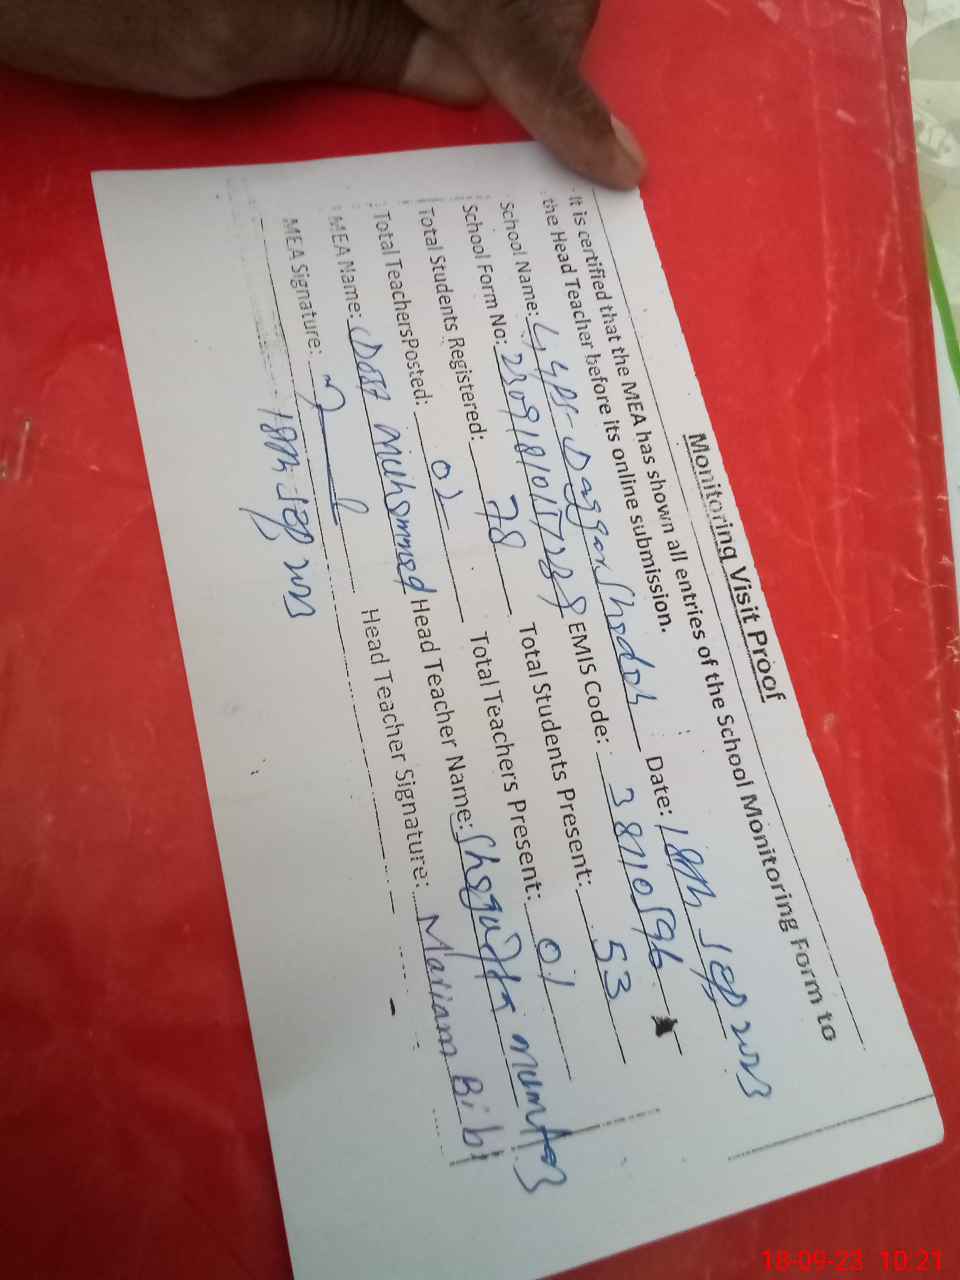 Monitoring Visit Proof
It is certified that the MEA has shown all entries of the School Monitoring Form to
the Head Teacher before its online submission.
School Name: Daggar Date: 18th Sep 2023
School Form No: EMIS Code: 38110596
Total Students Registered: 78 Total Students Present: 53
Total TeachersPosted: 02 Total Teachers Present: 01
MEA Name: Dost Muhammad Head Teacher Name: Shagufta Mumtaz
MEA Signature: Head Teacher Signature: Mariam Bibi
18th Sep 2023
18-09-23 10:21